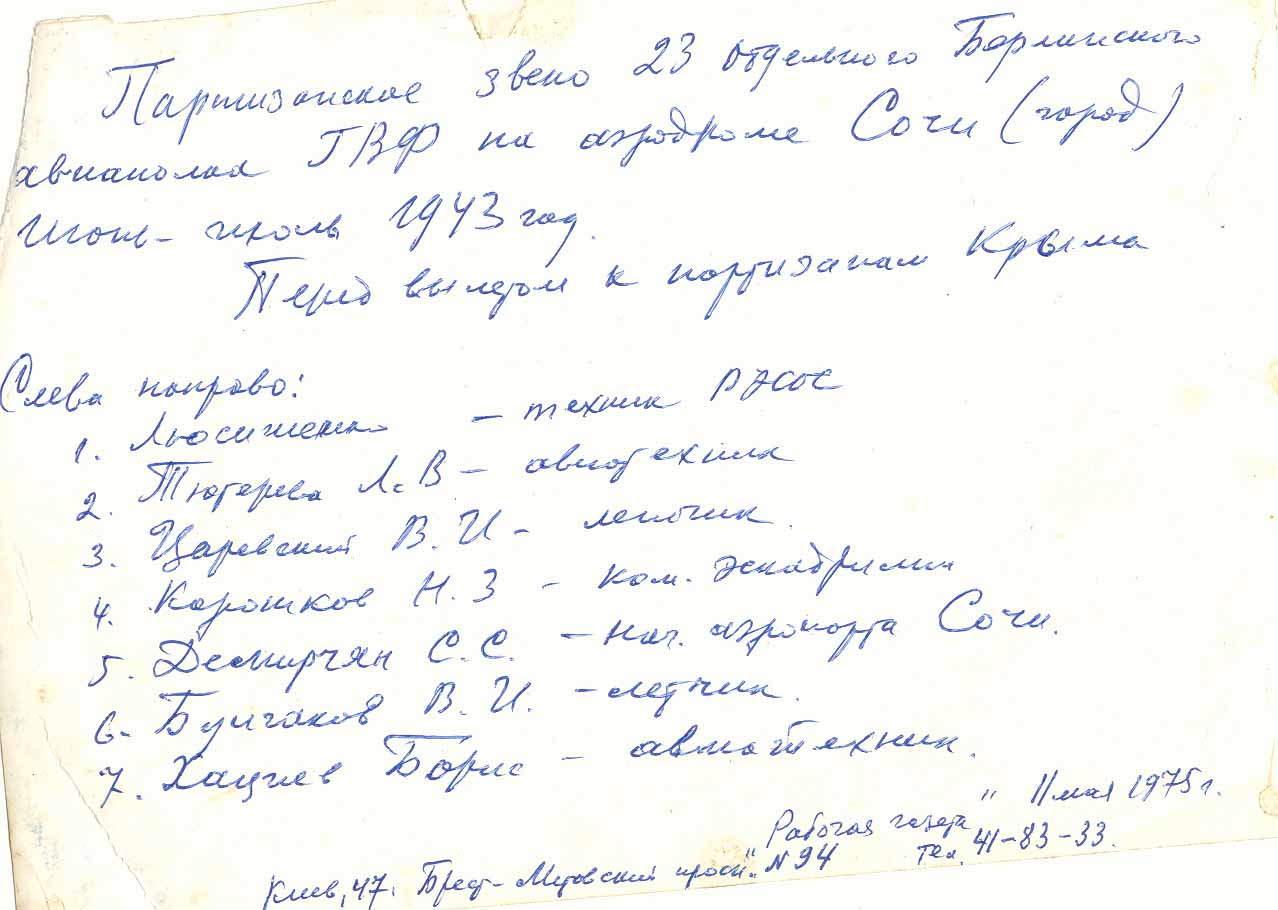 Партизанское звено 23 отдельного Берлинского
авиаполка ГВФ на аэродроме Сочи (город)
Июнь - июль 1943 год.
Перед вылетом к партизанам Крыма
Слева направо:
1. - техник РЭСОС
2. Тютерева Л.В - авиатехник
3. Царевский В.И - летчик.
4. Карошков Н.З - ком. эскадрилии
5. Демирчян С.С. - нач. аэропорта Сочи.
6. Булгаков В.И. - летчик.
7. Хацаев Борис - авиатехник.
"Рабочая газета" 11 мая 1975 г.
Киев, 47. Брест-Литовский просп. N 94 тел. 41-83-33.